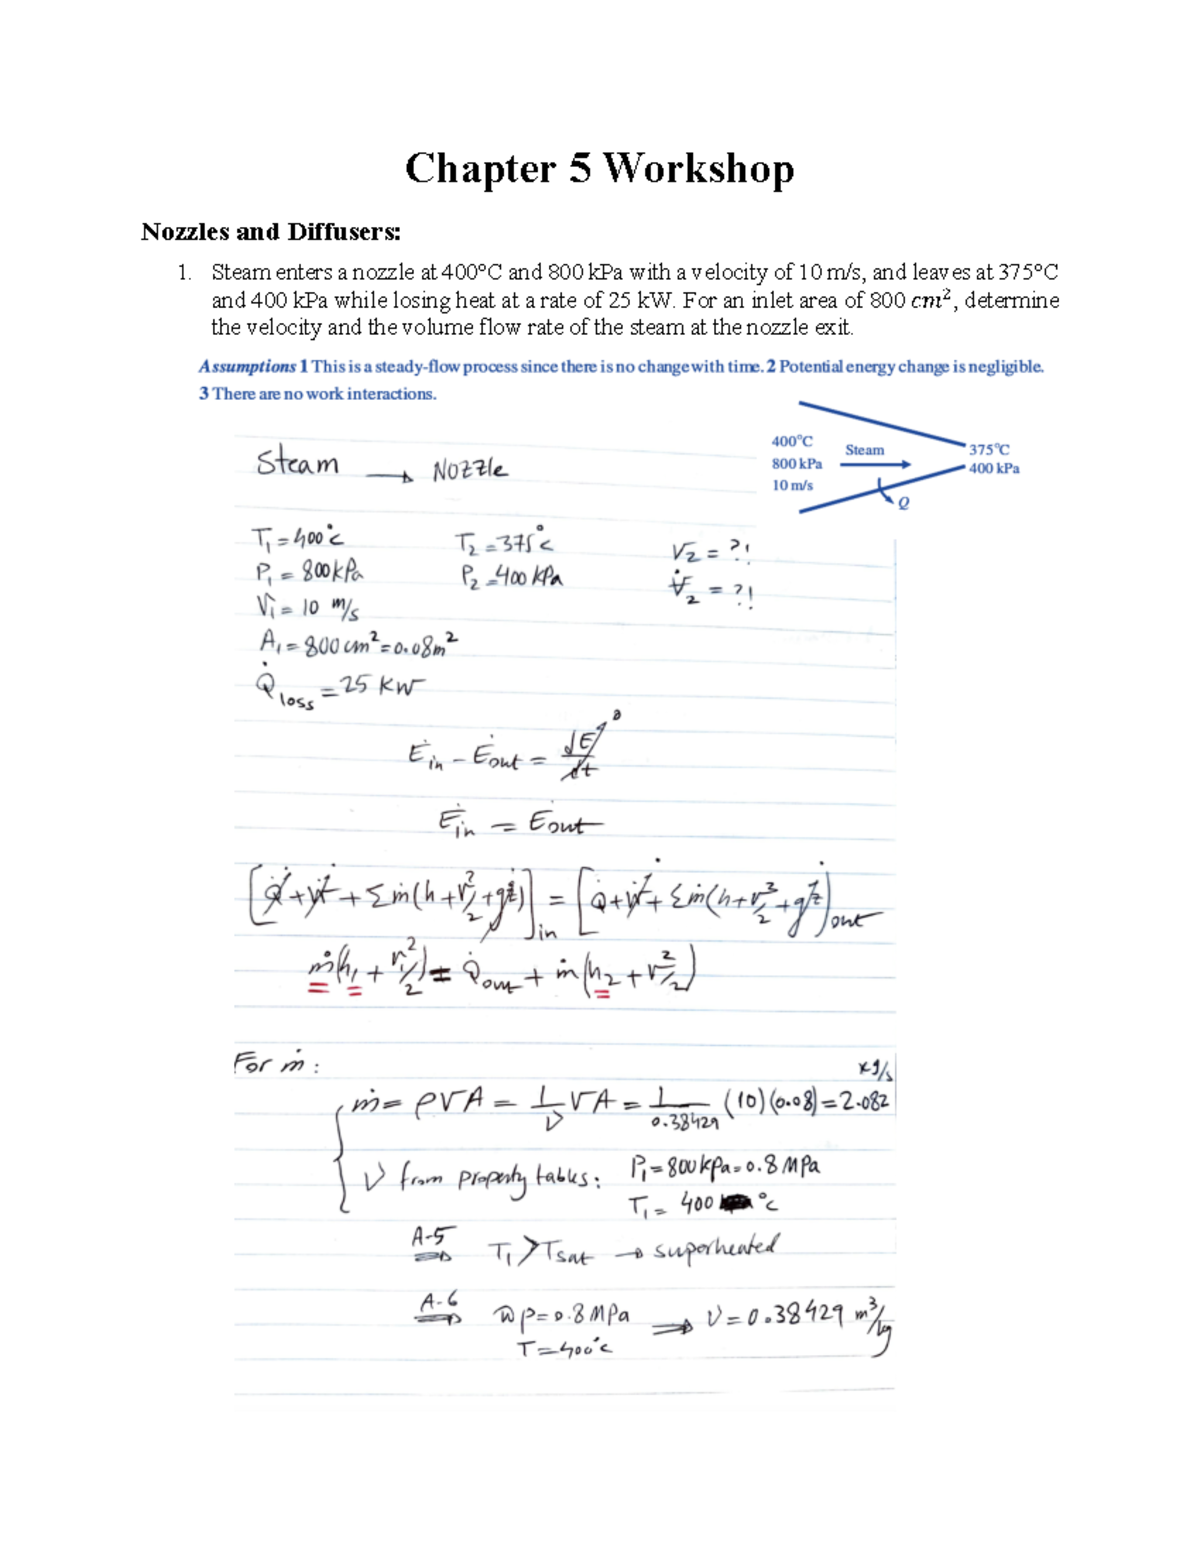 Chapter 5 Workshop
Nozzles and Diffusers:
1. Steam enters a nozzle at 400°C and 800 kPa with a velocity of 10 m/s, and leaves at 375°C
and 400 kPa while losing heat at a rate of 25 kW. For an inlet area of 800 cm², determine
the velocity and the volume flow rate of the steam at the nozzle exit.
Assumptions 1 This is a steady-flow process since there is no change with time. 2 Potential energy change is negligible.
3 There are no work interactions.
400°C
800 kPa
10 m/s
Steam
375°C
400 kPa
Q
Steam → Nozzle
T₁ = 400°c T₂ = 375°c V₂ = ?!
P₁ = 800 kPa P₂ = 400 kPa V̇₂ = ?!
V₁ = 10 m/s
A₁ = 800 cm² = 0.08 m²
Q̇loss = 25 KW
Ėin - Ėout = dE/dt 0
Ėin = Ėout
[Q̇ + Ẇ + Σṁ(h + V²/2 + gz)]in = [Q̇ + Ẇ + Σṁ(h + V²/2 + gz)]out
ṁ(h₁ + V₁²/2) = Q̇out + ṁ(h₂ + V₂²/2)
For ṁ:
ṁ = ρVA = 1/ν VA = 1/0.38429 (10)(0.08) = 2.082 kg/s
ν from property tables: P₁ = 800 kpa = 0.8 MPa
T₁ = 400 °c
A-5 ⇒ T₁ > Tsat → superheated
A-6 ⇒ @ p = 0.8 MPa ⇒ ν = 0.38429 m³/kg
T = 400°c